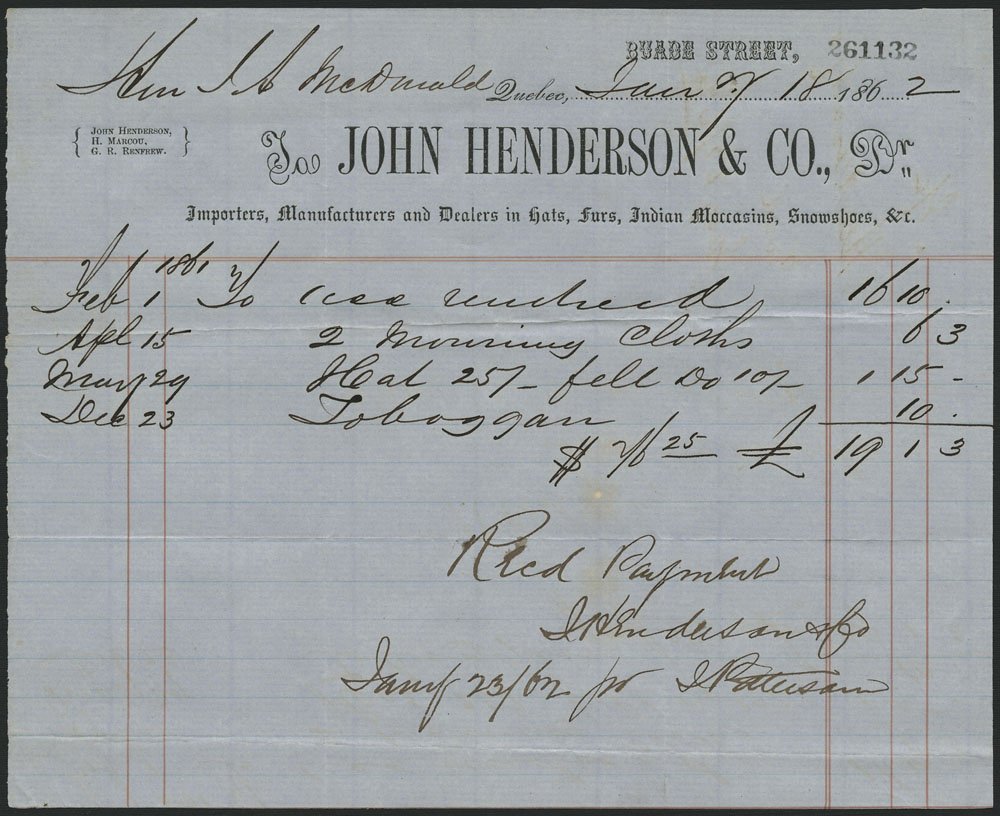 BUADE STREET, 261132
Hon J A McDonald Quebec, Jany 18 1862
JOHN HENDERSON,
H. MARCOU,
G. R. RENFREW.
To JOHN HENDERSON & CO., Dr
Importers, Manufacturers and Dealers in Hats, Furs, Indian Moccasins, Snowshoes, &c.
1861
Feb 1 To rendered 16 10 .
Apl 15 2 Mourning Cloths 6 3
May 29 Hat 25/- felt Do 10/- 1 15 -
Dec 23 Toboggan 10 .
$ 76 25 £ 19 1 3
Recd Payment
J Henderson & Co
Jany 23/62 pr J Patterson